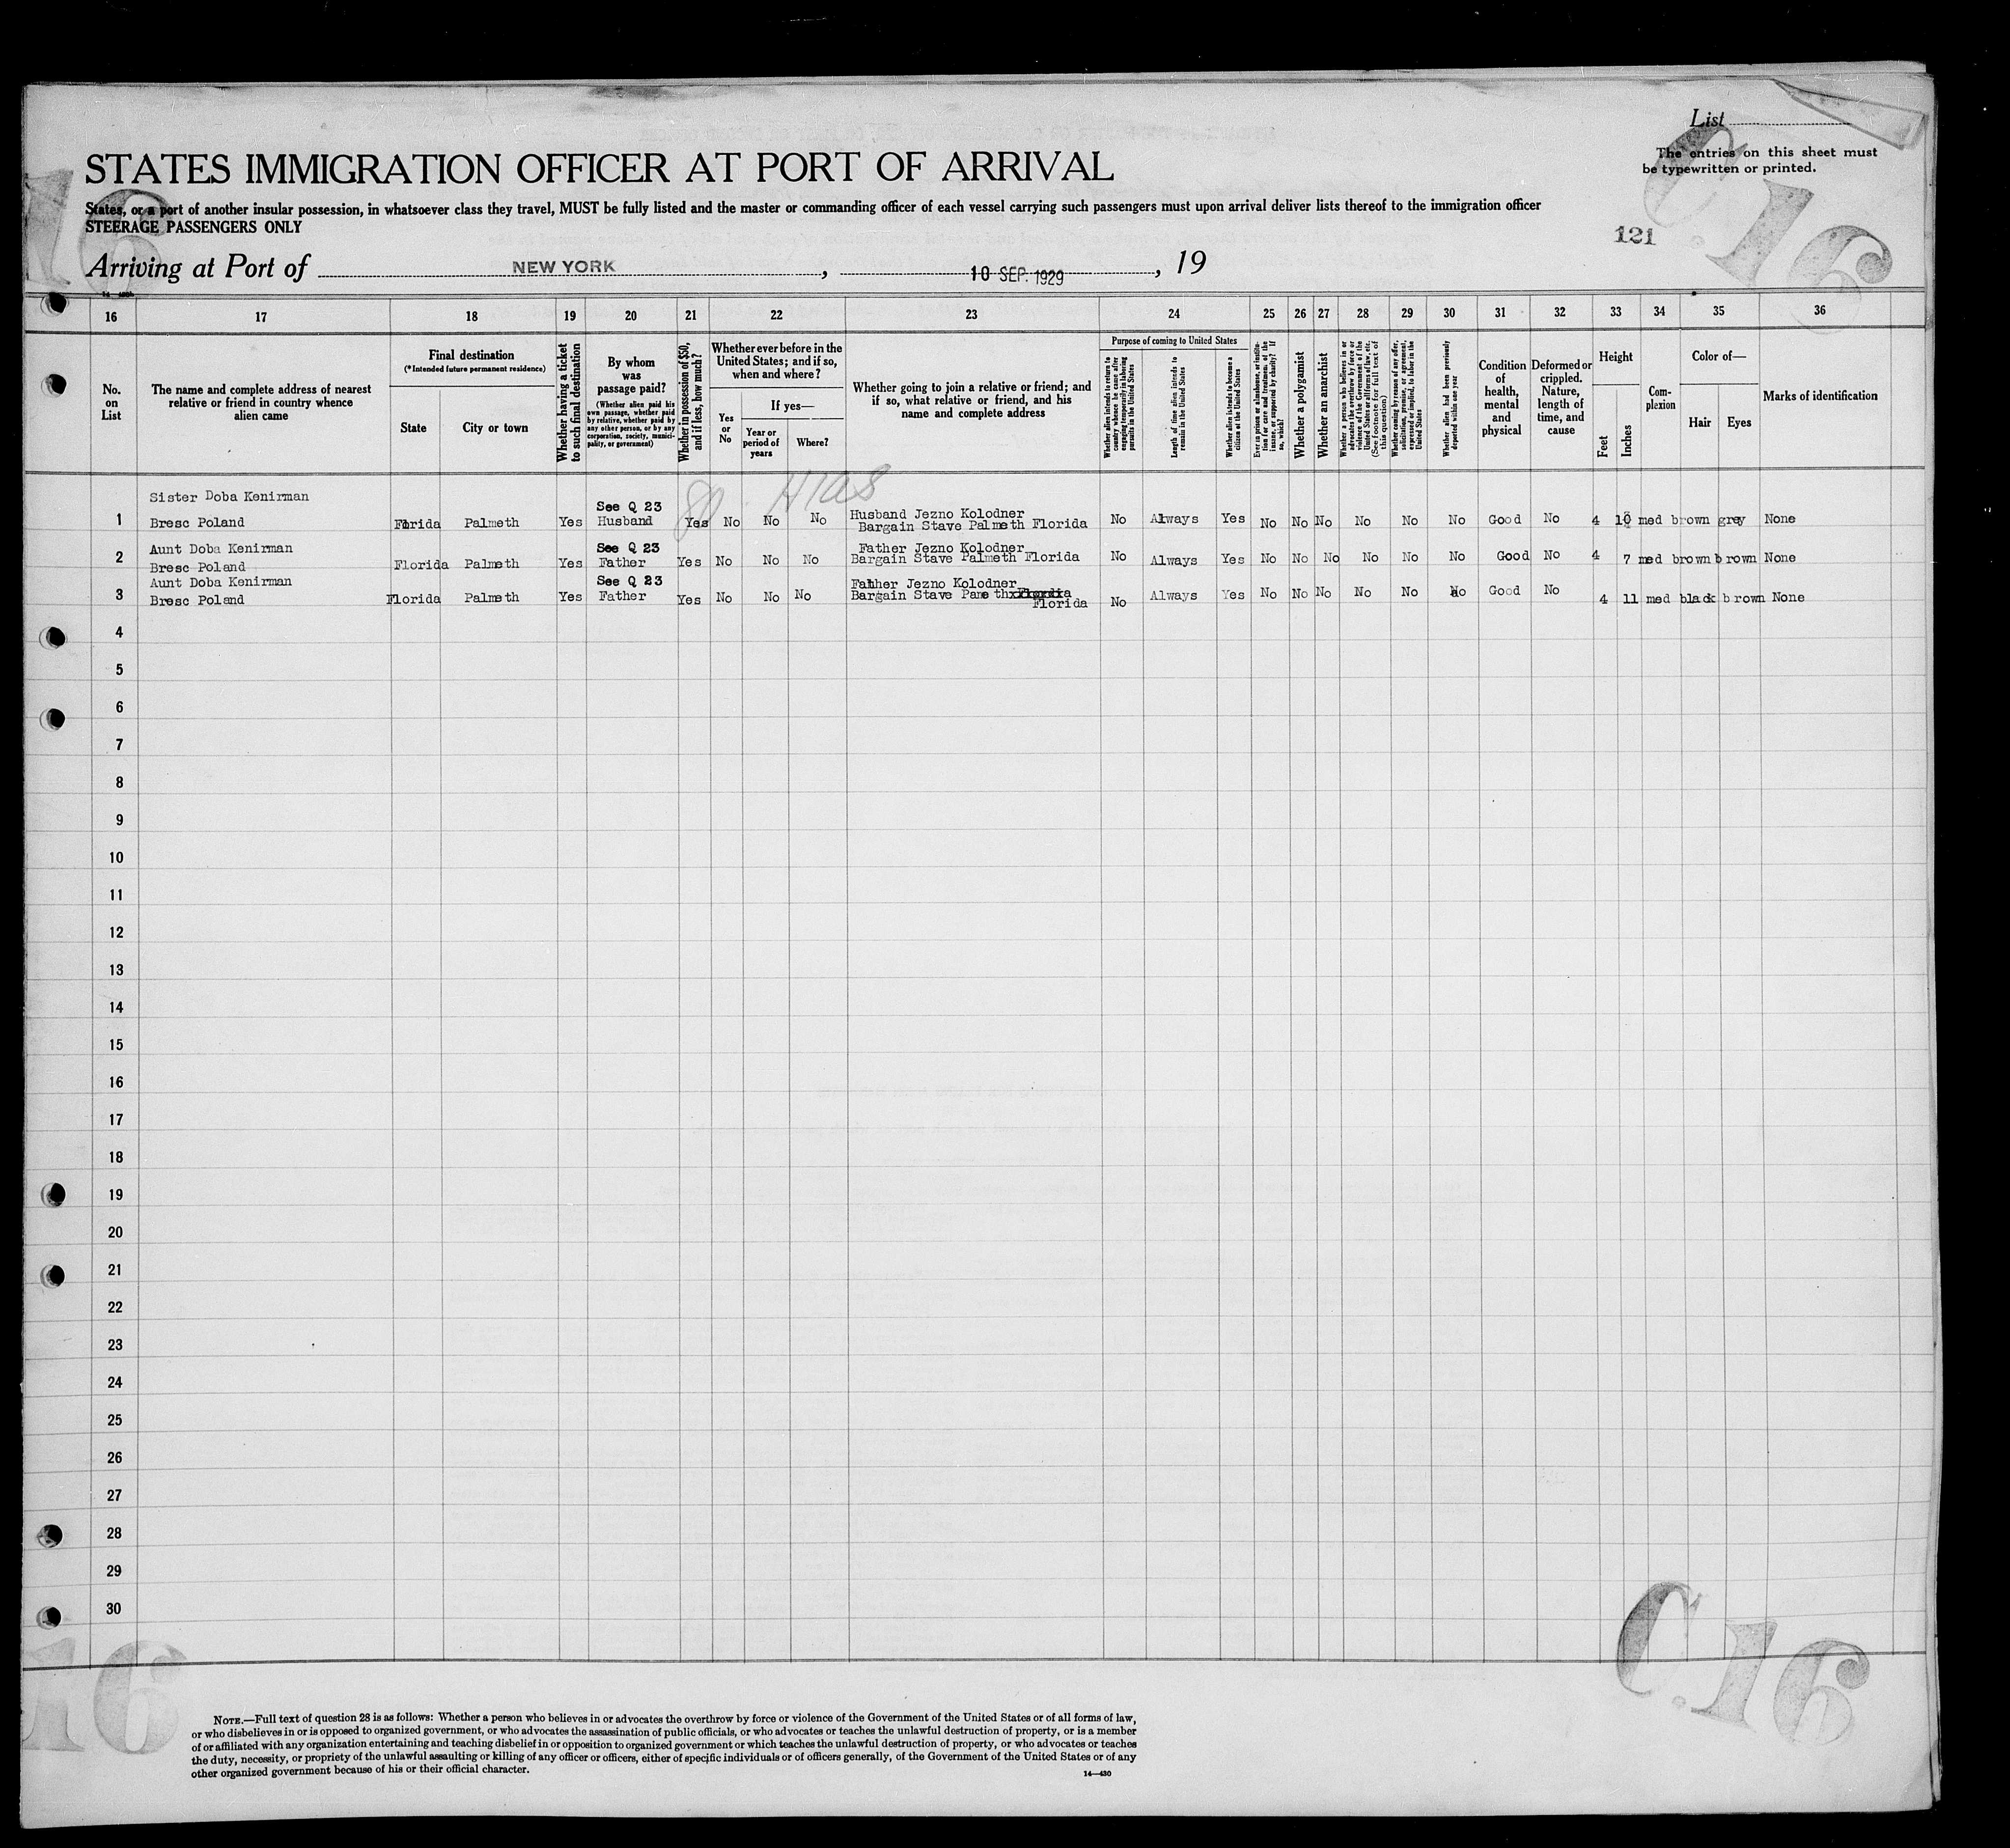 List
The entries on this sheet must
be typewritten or printed.
STATES IMMIGRATION OFFICER AT PORT OF ARRIVAL
States, or a port of another insular possession, in whatsoever class they travel, MUST be fully listed and the master or commanding officer of each vessel carrying such passengers must upon arrival deliver lists thereof to the immigration officer
STEERAGE PASSENGERS ONLY
C.16
16
121
Arriving at Port of NEW YORK , 10 SEP. 1929 , 19
16 17 18 19 20 21 22 23 24 25 26 27 28 29 30 31 32 33 34 35 36
No.
on
List
The name and complete address of nearest
relative or friend in country whence
alien came
Final destination
(*Intended future permanent residence)
State
City or town
Whether having a ticket
to such final destination
By whom
was
passage paid?
(Whether alien paid his
own passage, whether paid
by relative, whether paid by
any other person, or by any
corporation, society, munici-
pality, or government)
Whether in possession of $50,
and if less, how much?
Whether ever before in the
United States; and if so,
when and where?
Yes
or
No
If yes—
Year or
period of
years
Where?
Whether going to join a relative or friend; and
if so, what relative or friend, and his
name and complete address
Purpose of coming to United States
Whether alien intends to return to
country whence he came after
engaging temporarily in laboring
pursuits in the United States
Length of time alien intends to
remain in the United States
Whether alien intends to become a
citizen of the United States
Ever in prison or almshouse, or institu-
tion for care and treatment of the
insane, or supported by charity? If
so, which?
Whether a polygamist
Whether an anarchist
Whether a person who believes in or
advocates the overthrow by force or
violence of the Government of the
United States or all forms of law, etc.
(See footnote for full text of
this question)
Whether coming by reason of any offer,
solicitation, promise, or agreement,
expressed or implied, to labor in the
United States
Whether alien had been previously
deported within one year
Condition
of
health,
mental
and
physical
Deformed or
crippled.
Nature,
length of
time, and
cause
Height
Feet
Inches
Com-
plexion
Color of—
Hair
Eyes
Marks of identification
Hias
Sister Doba Kenirman See Q 23 Husband Jezno Kolodner
1 Bresc Poland Florida Palmeth Yes Husband Yes No No No Bargain Stave Palmeth Florida No Always Yes No No No No No No Good No 4 10 med brown grey None
Aunt Doba Kenirman See Q 23 Father Jezno Kolodner
2 Bresc Poland Florida Palmeth Yes Father Yes No No No Bargain Stave Palmeth Florida No Always Yes No No No No No No Good No 4 7 med brown brown None
Aunt Doba Kenirman See Q 23 Father Jezno Kolodner
3 Bresc Poland Florida Palmeth Yes Father Yes No No No Bargain Stave Pame th Florida No Always Yes No No No No No No Good No 4 11 med black brown None
4
5
6
7
8
9
10
11
12
13
14
15
16
17
18
19
20
21
22
23
24
25
26
27
28
29
30
16
C.16
NOTE.—Full text of question 28 is as follows: Whether a person who believes in or advocates the overthrow by force or violence of the Government of the United States or of all forms of law,
or who disbelieves in or is opposed to organized government, or who advocates the assassination of public officials, or who advocates or teaches the unlawful destruction of property, or is a member
of or affiliated with any organization entertaining and teaching disbelief in or opposition to organized government or which teaches the unlawful destruction of property, or who advocates or teaches
the duty, necessity, or propriety of the unlawful assaulting or killing of any officer or officers, either of specific individuals or of officers generally, of the Government of the United States or of any
other organized government because of his or their official character.
14—430